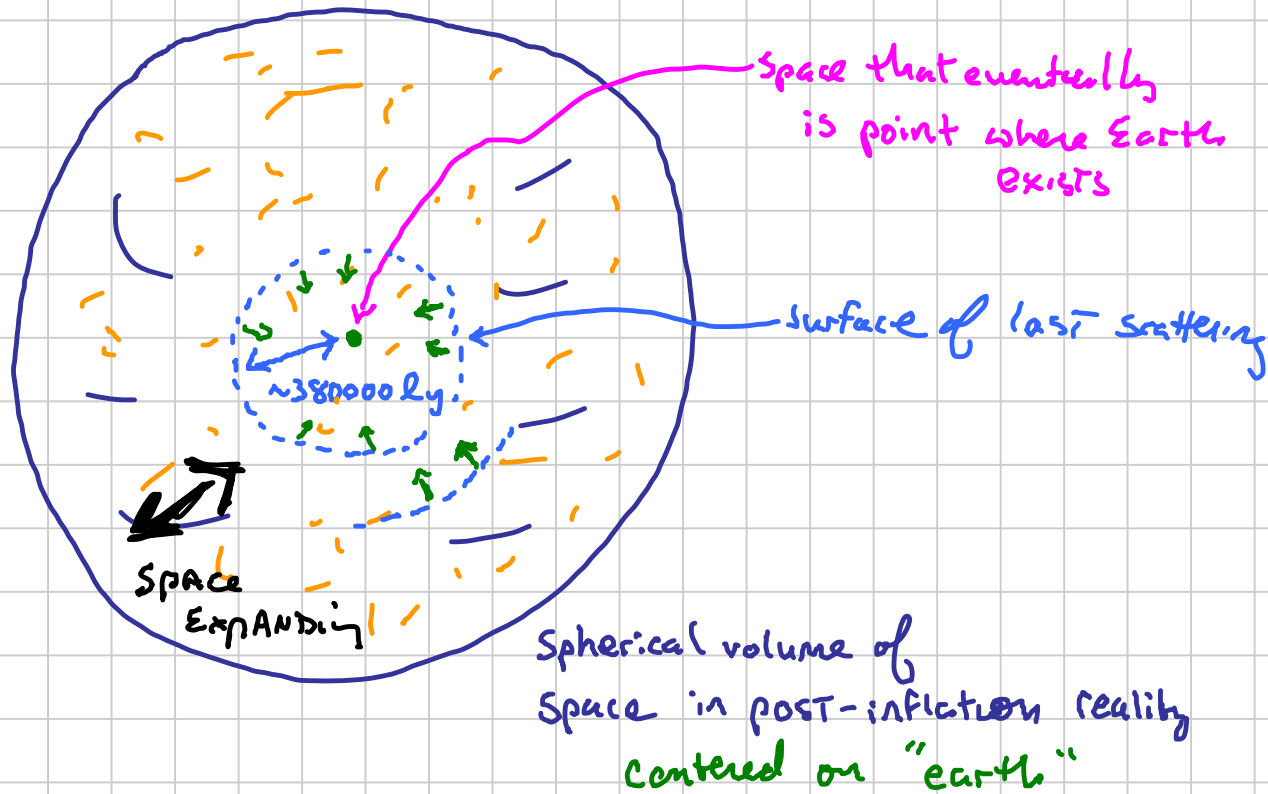 space that eventually
is point where Earth
exists
surface of last scattering
~380000 ly
SPACE
EXPANDing
Spherical volume of
Space in post-inflation reality
centered on "earth"